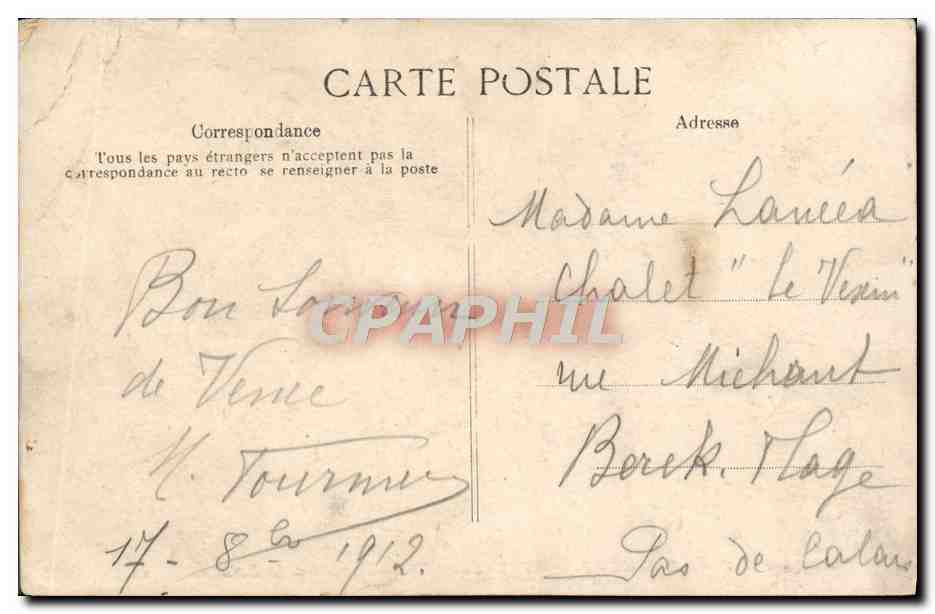 CARTE POSTALE
Correspondance
Tous les pays étrangers n'acceptent pas la
correspondance au recto se renseigner à la poste
Adresse
Bon Souvenir
de Venise
M. Tournier
17 - 8bre 1912.
Madame
Chalet "Le Vexin"
rue Michaut
Berck. Plage
Pas de Calais
CPAPHIL